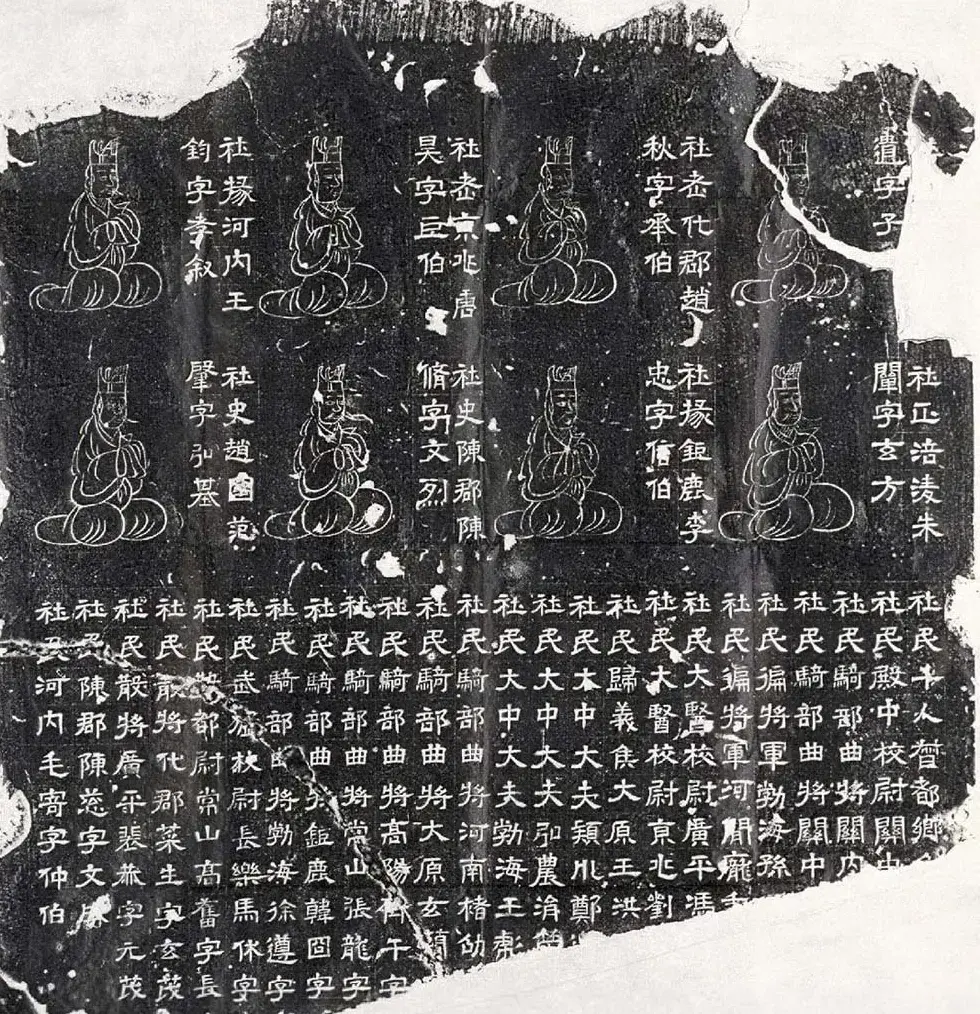 字子
社老代郡趙
秋字承伯
社老京兆唐
昊字巨伯
社掾河内王
鈞字孝叙
社正涪淩朱
闡字玄方
社掾鉅鹿李
忠字信伯
社史陳郡陳
脩字文烈
社史趙國范
肇字弘基
社民平人督都鄉
社民殿中校尉關中
社民騎部曲將關内
社民騎部曲將關中
社民偏將軍勃海孫
社民偏將軍河間龐
社民大醫校尉廣平馮
社民大醫校尉京兆劉
社民歸義侯大原王洪
社民大中大夫潁川鄭
社民大中大夫弘農
社民大中大夫勃海王彪
社民騎部曲將河南楮劭
社民騎部曲將大原玄
社民騎部曲將高陽齊午字
社民騎部曲將常山張龍字
社民騎部曲將鉅鹿韓囧字
社民騎部曲將勃海徐遵字
社民武猛校尉長樂馬休字
社民都尉常山高舊字長
社民散將代郡葉生字玄茂
社民散將廣平裴恭字元茂
社民陳郡陳慈字文
社民河内毛寄字仲伯